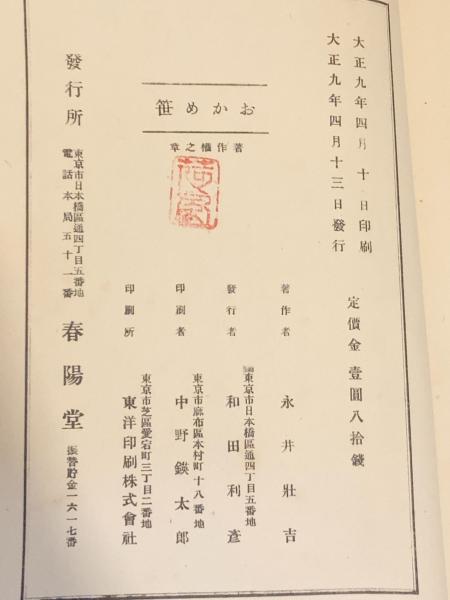 大正九年四月十日印刷
大正九年四月十三日發行
定價金壹圓八拾錢
おかめ笹
著作權之章
荷風
著作者
永井壯吉
發行者
東京市日本橋區通四丁目五番地
和田利彥
印刷者
東京市麻布區本村町十八番地
中野鍈太郎
印刷所
東京市芝區愛宕町三丁目二番地
東洋印刷株式會社
發行所
東京市日本橋區通四丁目五番地
電話本局五十一番
春陽堂
振替貯金一六一七番